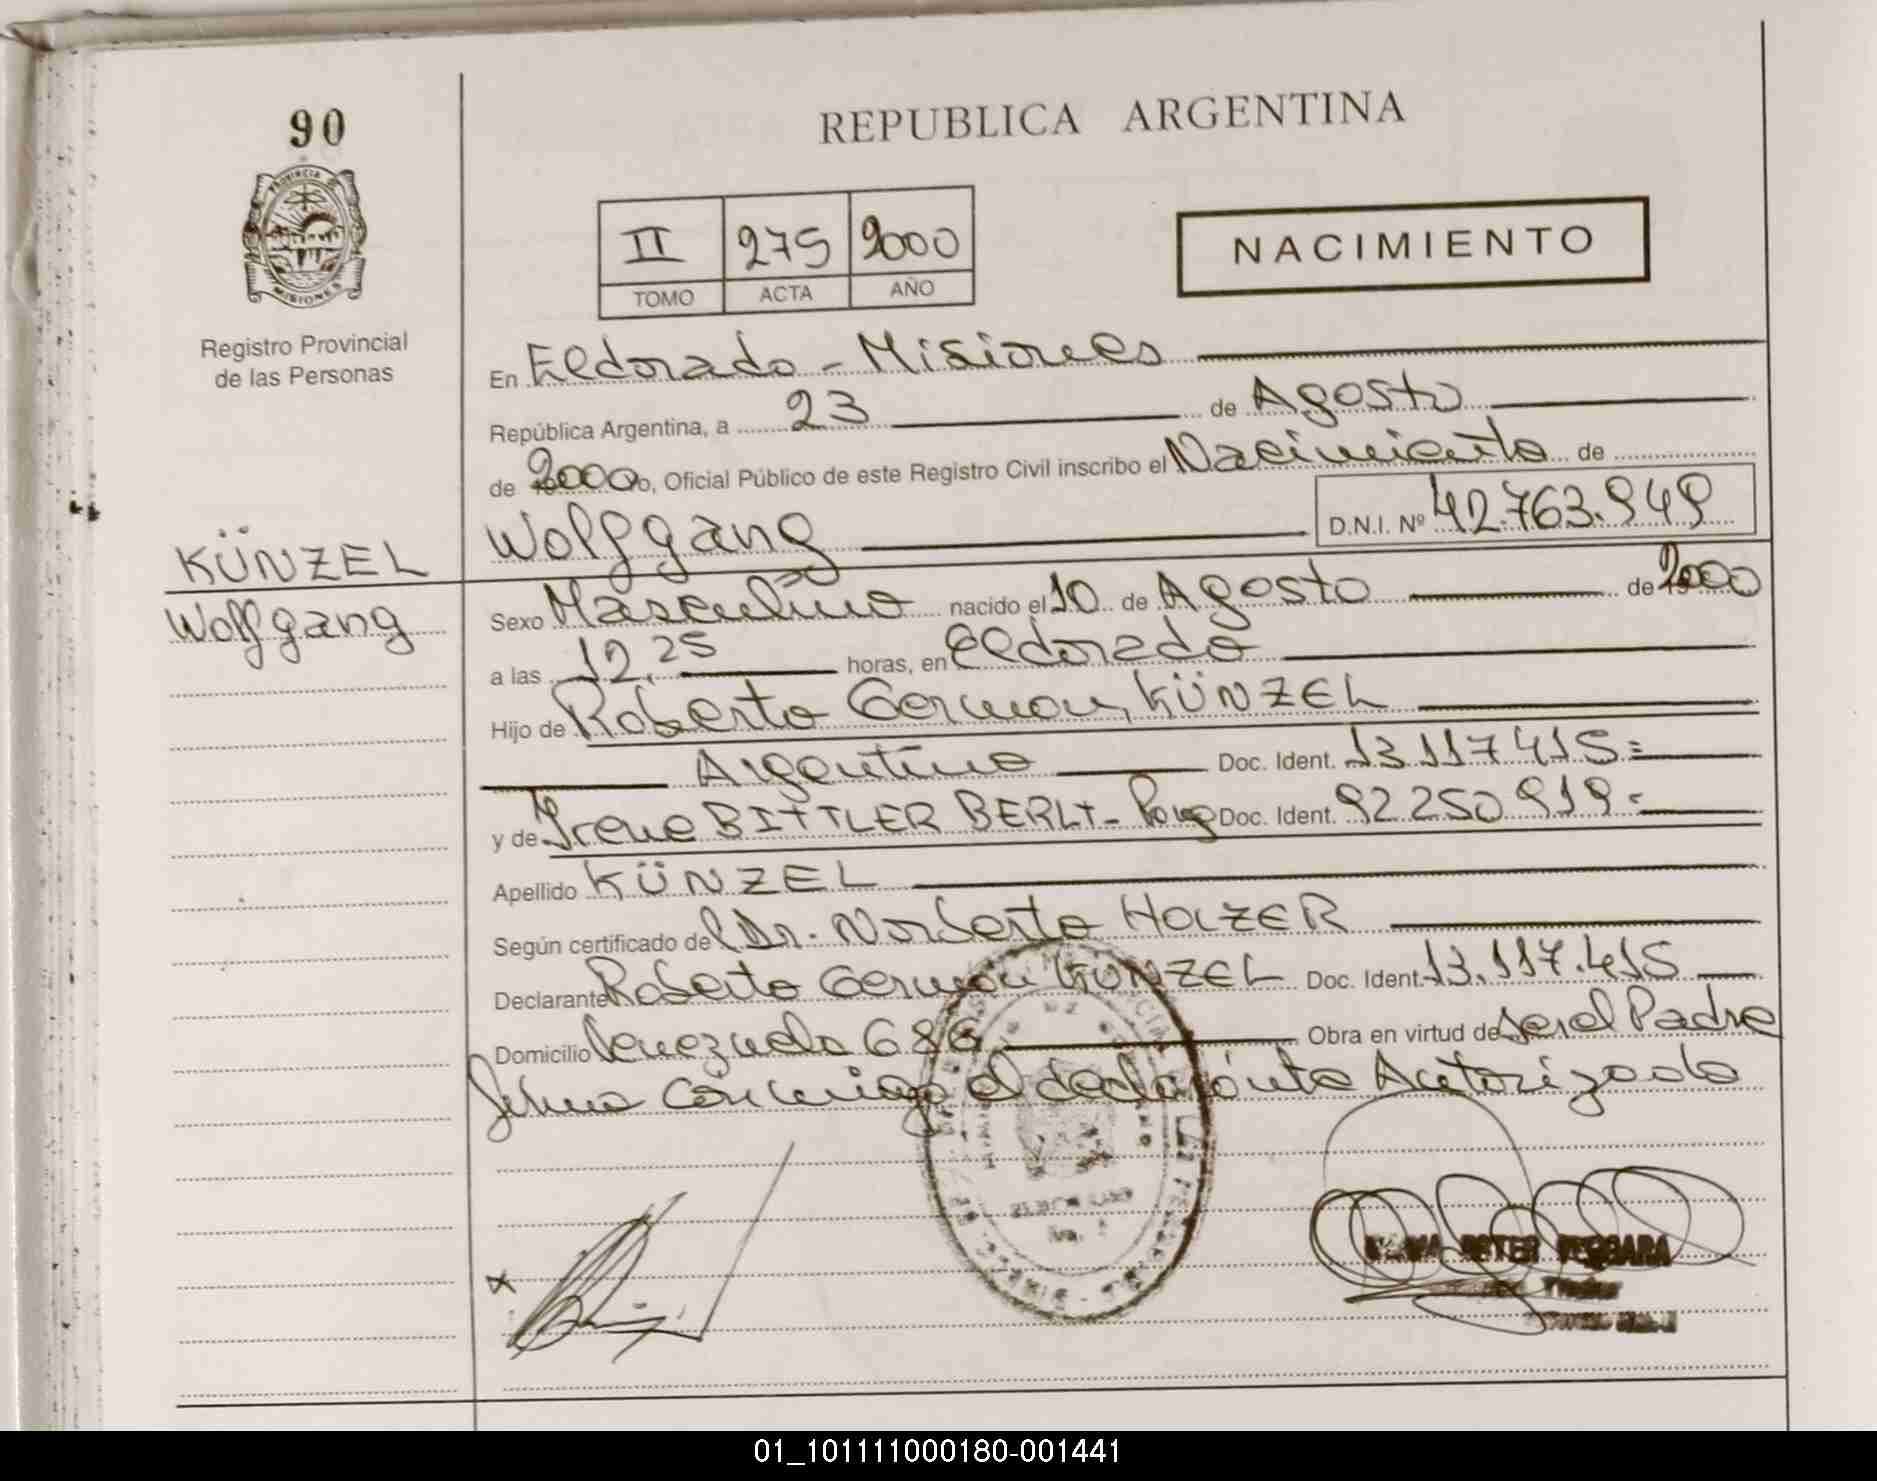 90
REPUBLICA ARGENTINA
PROVINCIA
MISIONES
II 275 2000
TOMO ACTA AÑO
NACIMIENTO
Registro Provincial
de las Personas
En Eldorado - Misiones
República Argentina, a 23 de Agosto
de 2000, Oficial Público de este Registro Civil inscribo el Nacimiento de
KÜNZEL
Wolfgang
Wolfgang D.N.I. Nº 42.763.949
Sexo Masculino nacido el 10 de Agosto de 2000
a las 12,25 horas, en Eldorado
Hijo de Roberto German KÜNZEL
Argentino Doc. Ident. 13.117.415=
y de Irene BITTLER BERLT - Doc. Ident. 92.250.919=
Apellido KÜNZEL
Según certificado del Dr. Norberto HOLZER
Declarante Roberto German KÜNZEL Doc. Ident. 13.117.415
Domicilio Venezuela 686 Obra en virtud de ser el Padre
firma conmigo el declarante Autorizado
VERGARA
01_101111000180-001441